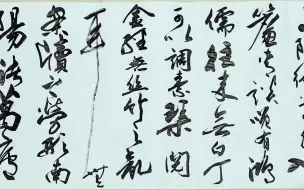 簾青談笑有鴻
儒往來無白丁
可以調素琴閱
金經無絲竹之亂
耳無
案牘之勞形南
陽諸葛廬